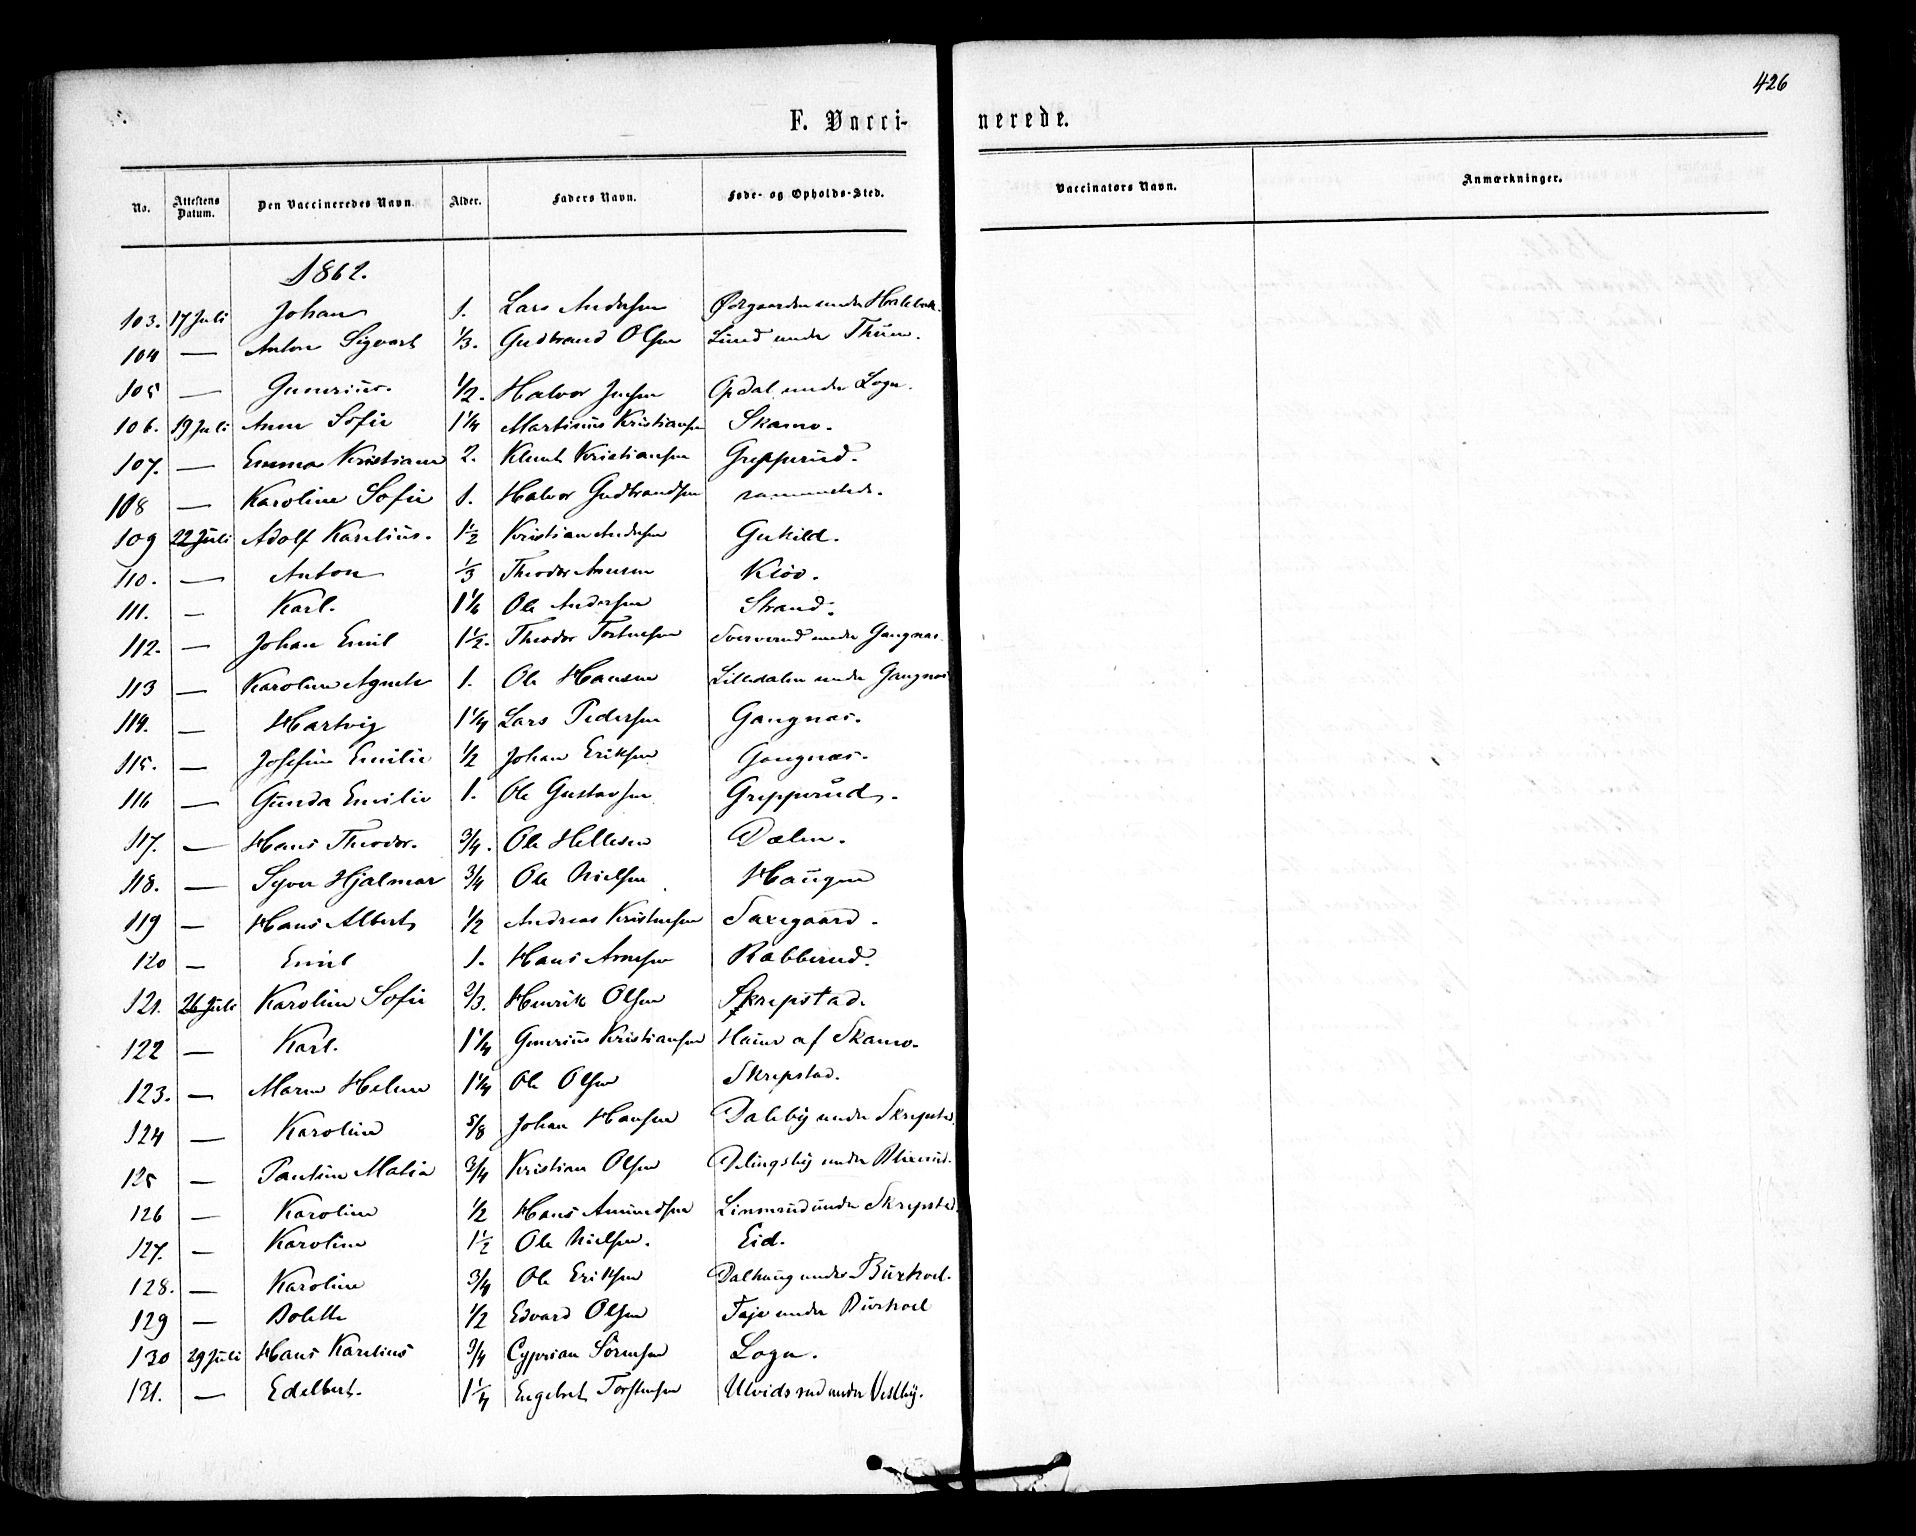 426
F. Vacci- nerede.
No. Attestens Datum. Den Vaccineredes Navn. Alder. Faders Navn. Føde- og Opholds-Sted. Vaccinators Navn. Anmærkninger.
1862.
103. 17 Juli Johan 1. Lars Andersen Ødegaarden under
104 — Anton Sigvart 1/3. Gudbrand Olsen Lund under Thun.
105 — Gunerius. 1/2. Halvor Jensen Opdal under Logn.
106. 19 Juli Anne Sofie 1 1/4 Martinus Kristiansen Skamo.
107. — Emma Kristiane 2. Klemt Kristiansen Grepperud.
108 — Karoline Sofie 1. Halvor Gudbrandsen sammesteds.
109 22 Juli Adolf Karelius. 1 1/2 Kristian Andersen Guhild.
110. — Anton 1/3 Theodor Arnesen
111. — Karl. 1 1/6 Ole Andersen Strand.
112. — Johan Emil 1 1/2. Theodor Torstensen under Gangnæs.
113 — Karoline Agnete 1. Ole Hansen Lilledalen under Gangnæs
114. — Hartvig 1 1/4 Lars Pedersen Gangnæs.
115. — Josefine Emilie 1/2 Johan Eriksen Gangnæs.
116 — Gunda Emilie 1. Ole Gustavsen Grepperud.
117. — Hans Theodor. 3/4. Ole Hellesen Dælen.
118. — Syver Hjalmar 3/4 Ole Nielsen Haugen
119 — Hans Albert 1/2 Andreas Kristensen Saxegaard.
120 — Emil 1. Hans Arnesen Rabberud.
121. 26 Juli Karoline Sofie 2/3. Henrik Olsen Skrepstad.
122 — Karl. 1 1/4 Gunerius Kristiansen af Skamo.
123. — Maren Helene 1 1/4 Ole Olsen Skrepstad.
124 — Karoline 5/8 Johan Hansen Daleby under Skrepstad.
125 — Pauline Matia 3/4 Kristian Olsen Delingsby under Blixrud.
126 — Karoline 1/2 Hans Amundsen Linmrud under Skrepstad.
127. — Karoline 1 1/2 Ole Nielsen. Eid.
128. — Karoline 3/4 Ole Eriksen Dalhaug under Burhoel.
129 — Bolette 1/2 Edvard Olsen Taje under Burhoel
130 29 Juli Hans Karelius 3/4 Cyprian Sörensen Logn.
131. — Edelbert. 1 1/4 Engebret Torstensen Ulvidsrud under Vestby.